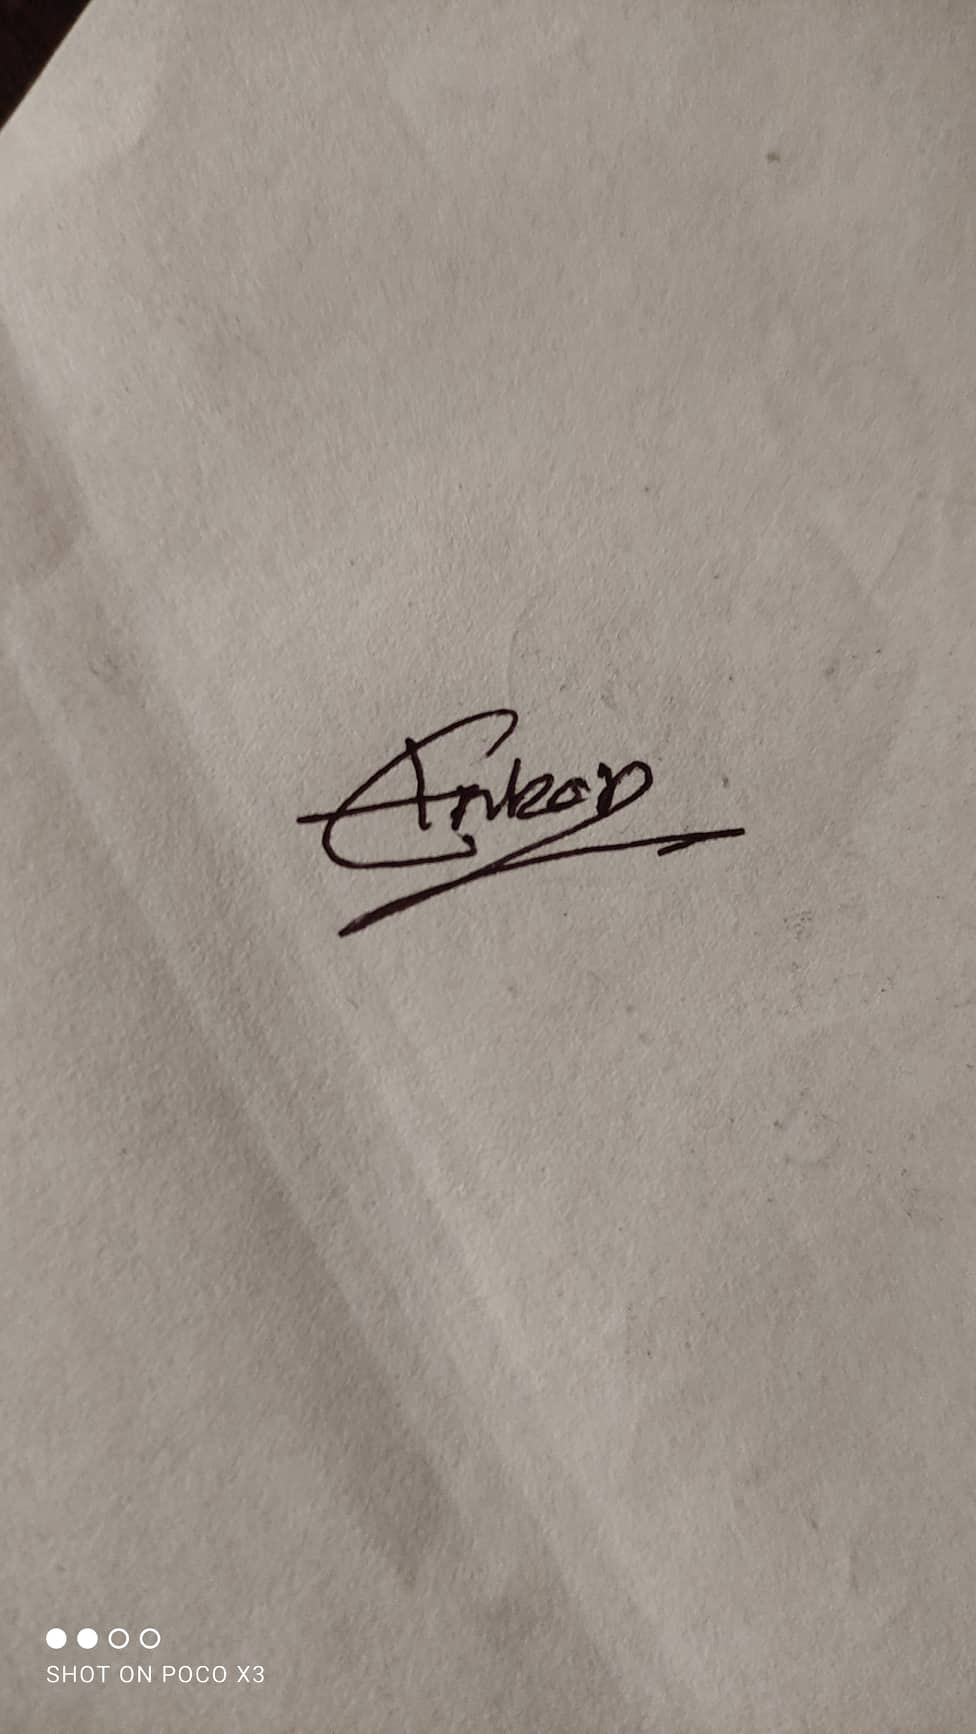 Ankan
SHOT ON POCO X3